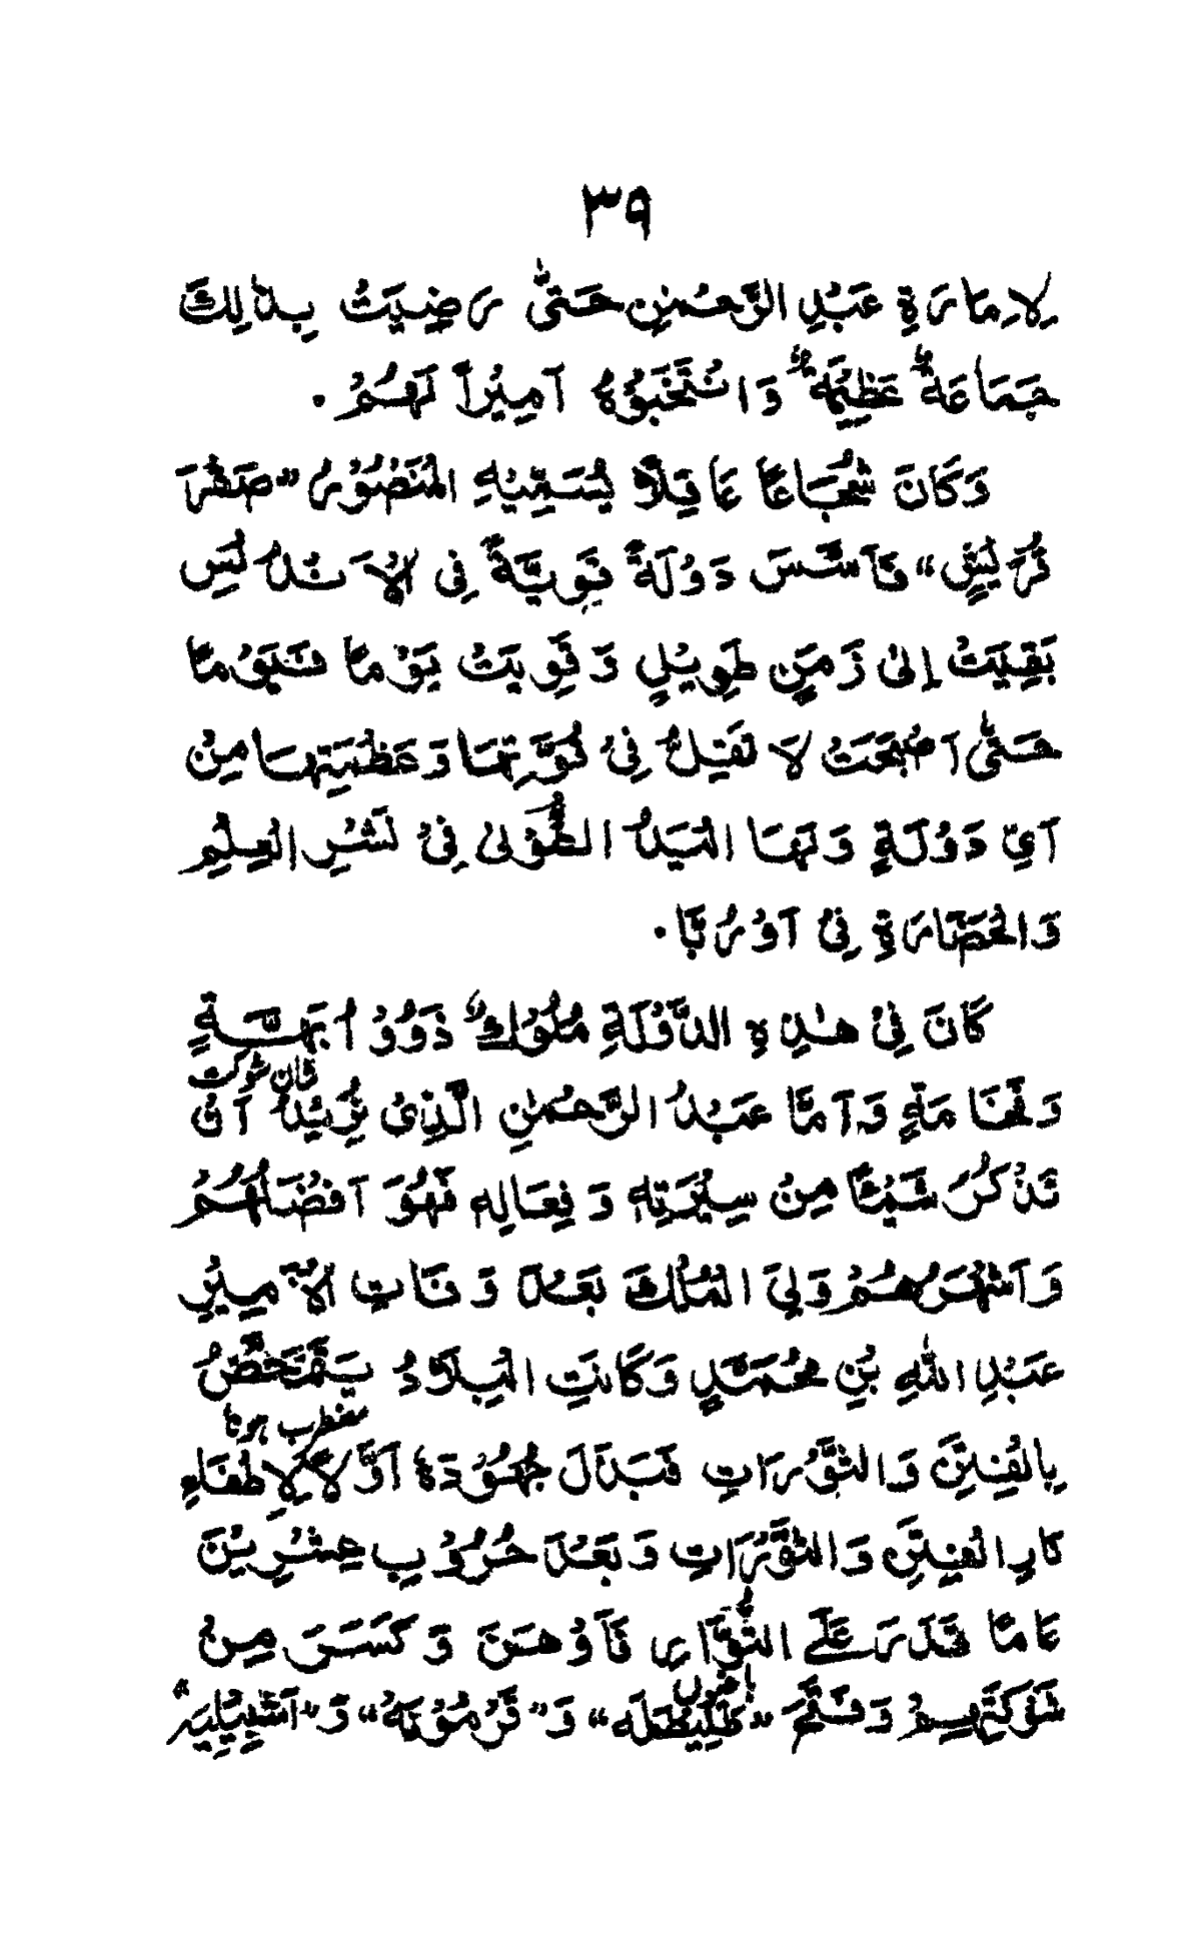 ٣٩
لِاِمَارَةِ عَبْدِ الرَّحْمٰنِ حَتّٰى رَضِيَتْ بِذَالِكَ
جَمَاعَةٌ عَظِيْمَةٌ وَانْتَخَبُوْهُ اَمِيْرًا لَهُمْ.
وَكَانَ شُجَاعًا عَاقِلًا يُسَمِّيْهِ الْمَنْصُوْرُ "صَقْرَ
قُرَيْشٍ" فَاَسَّسَ دَوْلَةً قَوِيَّةً فِى الْاَنْدَلُسِ
بَقِيَتْ اِلىٰ زَمَنٍ طَوِيْلٍ وَقَوِيَتْ يَوْمًا فَيَوْمًا
حَتّٰى اَصْبَحَتْ لَا تَقِلُّ فِىْ قُوَّتِهَا وَعَظْمَتِهَا مِنْ
اَيِّ دَوْلَةٍ وَلَهَا الْيَدُ الطُّوْلىٰ فِىْ نَشْرِ الْعِلْمِ
وَالْحَضَارَةِ فِىْ اَوْرُبَّا.
كَانَ فِىْ هٰذِهِ الدَّوْلَةِ مُلُوْكٌ ذَوُوْ اُبَّهَةٍ
شان شوکت
وَفَخَامَةٍ وَاَمَّا عَبْدُ الرَّحْمٰنِ الَّذِىْ نُرِيْدُ اَنْ
نَذْكُرَ شَيْئًا مِنْ سِيْرَتِهِ وَفِعَالِهِ فَهُوَ اَفْضَلُهُمْ
وَاَشْهَرُهُمْ وَلِيَ الْمُلْكَ بَعْدَ وَفَاتِ الْاَمِيْرِ
عَبْدِ اللّٰهِ بْنِ مُحَمَّدٍ وَكَانَتِ الْبِلَادُ يَتَمَخَّضُ
مضطرب ہونا
بِالْفِتَنِ وَالثَّوْرَاتِ فَبَذَلَ جُهُوْدَهُ اَوَّلًا لِاِطْفَاءِ
نَارِ الْفِتَنِ وَالثَّوْرَاتِ وَبَعْدَ حُرُوْبِ عِشْرِيْنَ
عَامًا قَدَرَ عَلَى الثُّوَّارِ فَاَوْهَنَ وَكَسَرَ مِنْ
باغیوں
شَوْكَتِهِمْ وَفَتَحَ "طُلَيْطَلَه" وَ"قَرْمُوْنَهْ" وَ"اَشْبِيْلِيَه"